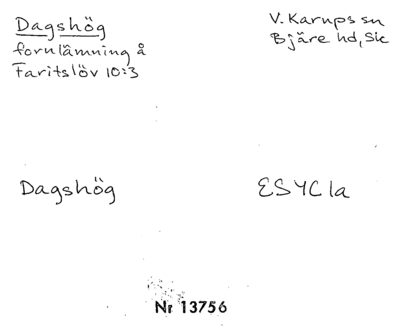 Dagshög
fornlämning å
Faritslöv 10:3
V. Karups sn
Bjäre hd, Sk
Dagshög
ESYC1a
Nr 13756